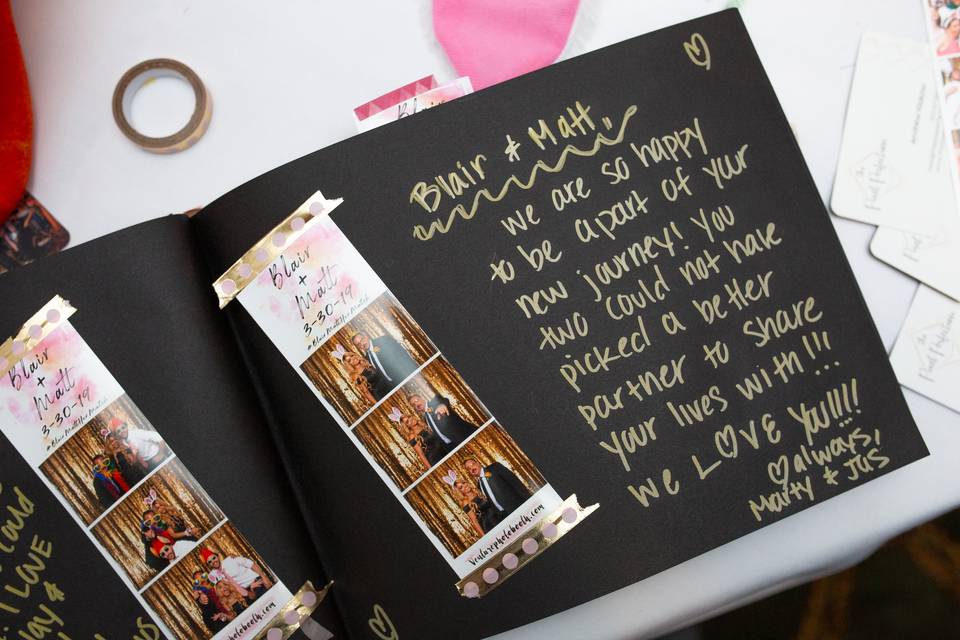 Blair & Matt,
we are so happy
to be apart of your
new journey! You
two could not have
picked a better
partner to share
your lives with!!!
We LOVE YU!!!!
always,
Marty & JUS
Blair
+
Matt
3-30-19
#BlairMattHerMatch
Venturephotobooth.com
Blair
+
Matt
3-30-19
#BlairMattHerMatch
photobooth.com
could
I LOVE
Blair
The
Pixel Perfection